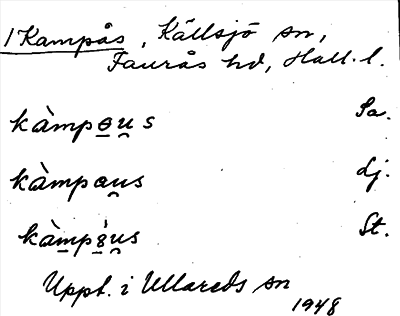 1 Kampås, Källsjö sn,
Faurås hd, Hall. l.
kàmpo̲u̯s Sa.
kàmpau̯s dj.
kàm̲pɛ̲̀u̯s St.
Uppt. i Ullareds sn
1948